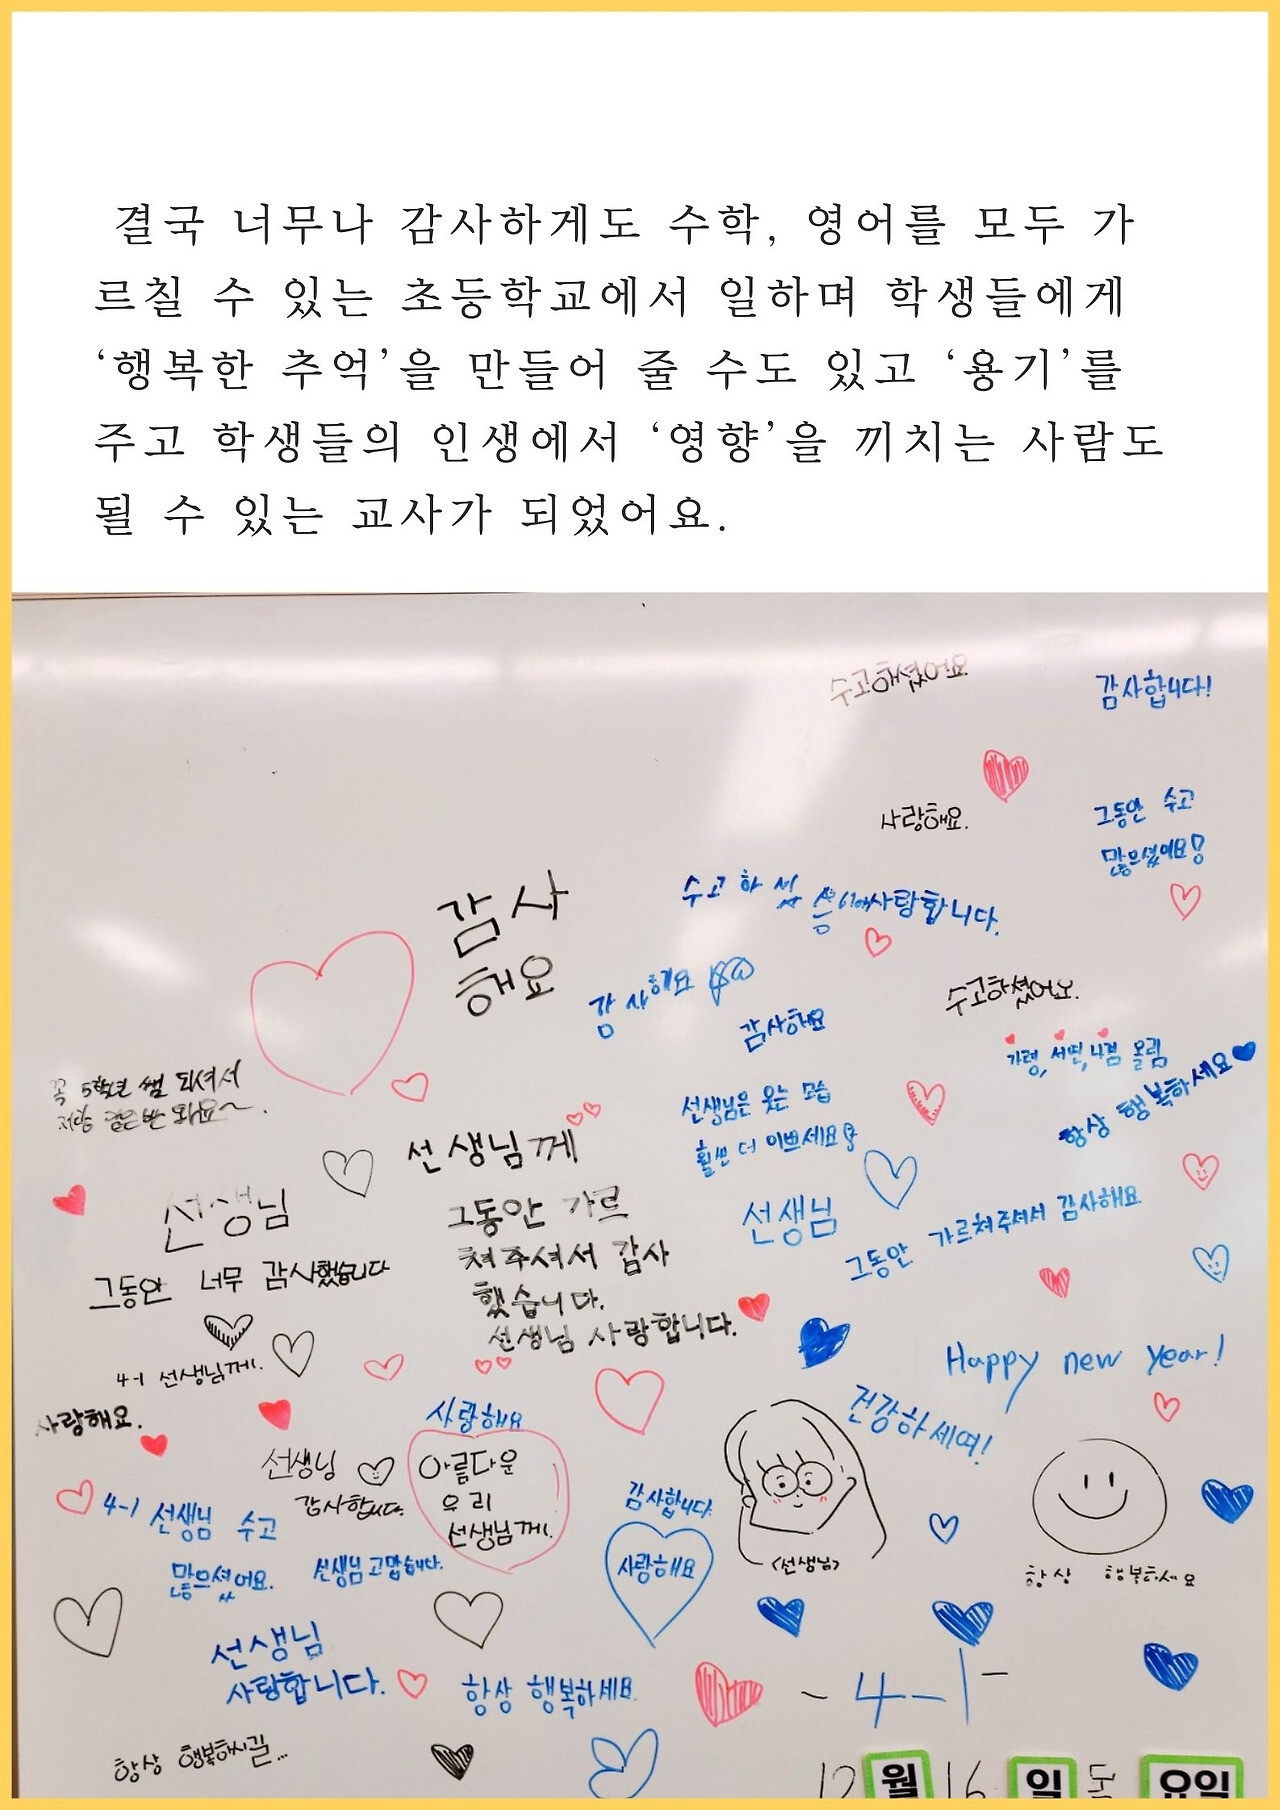 결국 너무나 감사하게도 수학, 영어를 모두 가
르칠 수 있는 초등학교에서 일하며 학생들에게
‘행복한 추억’을 만들어 줄 수도 있고 ‘용기’를
주고 학생들의 인생에서 ‘영향’을 끼치는 사람도
될 수 있는 교사가 되었어요.
수고하셨어요
감사합니다!
사랑해요.
그동안 수고
많으셨어요!
수고하셨
사랑합니다.
감사
해요
감사해요
감사해요
수고하셨어요.
가령, 올림
항상 행복하세요
꼭 5학년 쌤 되셔서
선생님은 웃는 모습
훨씬 더 이쁘세요
선생님께
그동안 가르
쳐주셔서 감사
했습니다.
선생님 사랑합니다.
선생님
그동안 너무 감사했습니다
선생님
그동안 가르쳐주셔서 감사해요
4-1 선생님께.
Happy new year!
사랑해요.
사랑해요
건강하세여!
선생님
감사합니다.
아름다운
우리
선생님께.
4-1 선생님 수고
많으셨어요.
선생님 고맙습니다.
감사합니다.
사랑해요
(선생님)
항상 행복하세요
선생님
사랑합니다.
항상 행복하세요.
- 4-1 -
항상 행복하시길...
12 월 16 일 요일